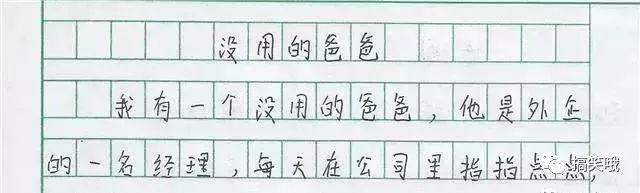 没用的爸爸
我有一个没用的爸爸，他是外企
的一名经理，每天在公司里指指点点，
搞笑哦